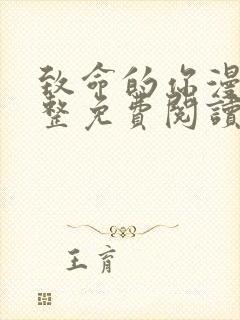 致命的你漫
整免費閱讀
王育